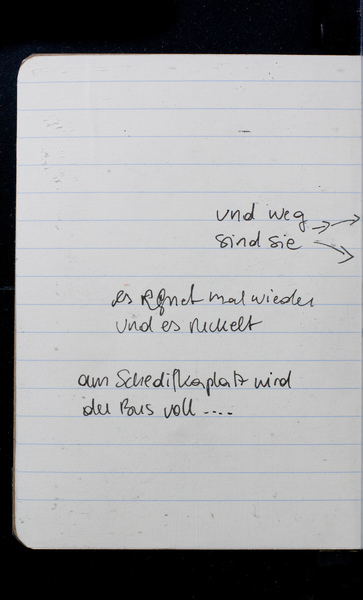 und weg
sind sie
es regnet mal wieder
und es ruckelt
am Schedifkaplatz wird
der Bus voll ....